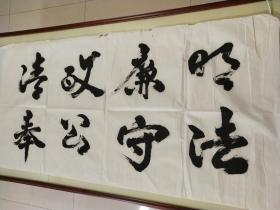 明法
廉守
政公
清奉